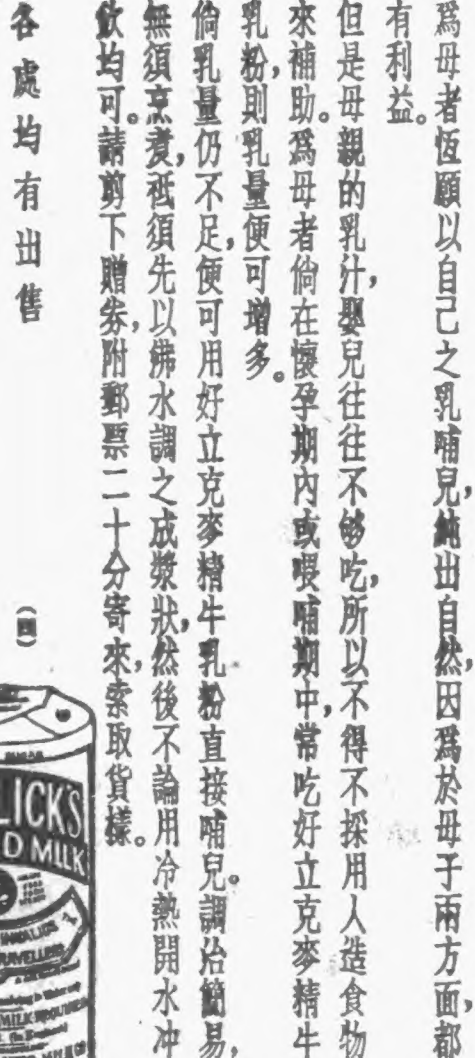 爲母者恆願以自己之乳哺兒，純出自然，因爲於母子兩方面，都
有利益。
但是母親的乳汁，嬰兒往往不够吃，所以不得不採用人造食物
來補助。爲母者倘在懷孕期內或喂哺期中，常吃好立克麥精牛
乳粉，則乳量便可增多。
倘乳量仍不足，便可用好立克麥精牛乳粉直接哺兒。調治簡易，
無須烹煮，祗須先以沸水調之成漿狀，然後不論用冷熱開水冲
飲均可。請剪下贈券，附郵票二十分寄來，索取貨樣。
各處均有出售
（四）
LICK'S
D MILK
INVALIDS
TRAVELLERS